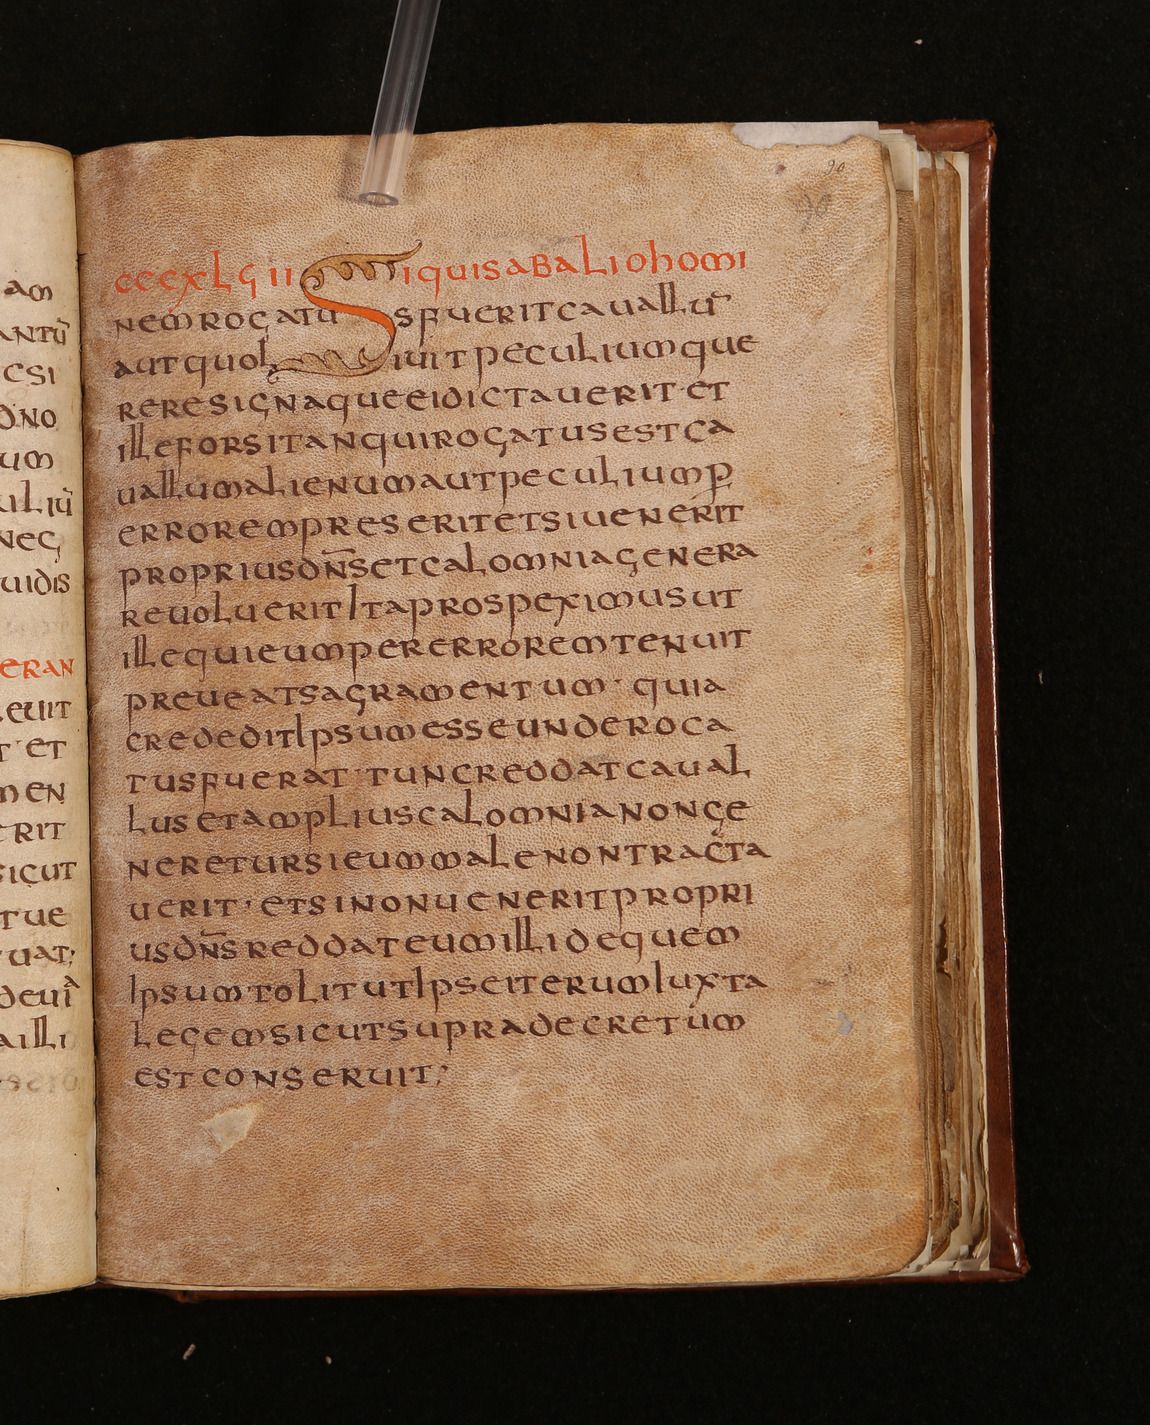 am
antū
csi
dno
um
uliū
neg
uidis
eran
euit
t· et
men
erit
sicut
tue
uat;
deuia
ailli
90
90
cccxlҁii Siquisabaliohomi
nemrogatusfueritcauallū
autquollibetiuitpeculiumque
reresignaqueeidictauerit·et
illeforsitanquirogatusestca
uallumalienumautpeculiump̱
errorempreseritetsiuenerit
propriusdn̄setcalomniagenera
reuolueritItaprospeximusut
illequieumpererroremtenuit
preueatsagramentum· quia
crededitIpsumesseunderoca
tusfuerat·tuncreddatcaual
lusetampliuscalomnianonge
neretursieummalenontracta
uerit·etsinonueneritpropri
usdn̄sreddateumillidequem
Ipsumtolitutlpseiterumiuxta
legemsicutsupradecretum
estconseruit;